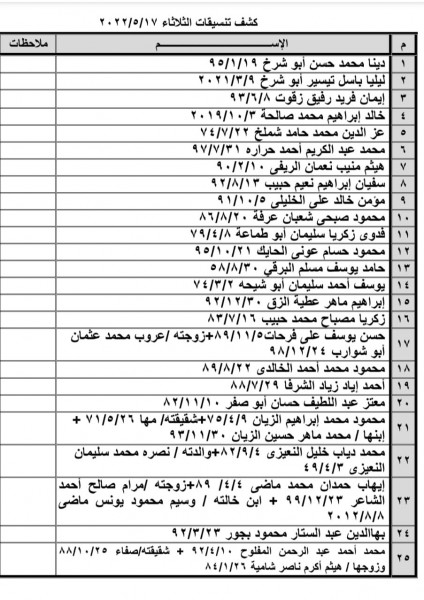 كشف تنسيقات الثلاثاء ٢٠٢٢/٥/١٧
م الإســـــم ملاحظات
١ دينا محمد حسن أبو شرخ ٩٥/١/١٩
٢ ليليا باسل تيسير أبو شرخ ٢٠٢١/٣/٩
٣ إيمان فريد رفيق زقوت ٩٣/٦/٨
٤ خالد إبراهيم محمد صالحة ٢٠١٩/١٠/٣
٥ عز الدين محمد حامد شملخ ٧٤/٧/٢٢
٦ محمد عبد الكريم أحمد حراره ٩٧/٧/٣١
٧ هيثم منيب نعمان الريفى ٩٠/٢/١٠
٨ سفيان إبراهيم نعيم حبيب ٩٢/٨/١٣
٩ مؤمن خالد على الخليلى ٩١/١٠/٥
١٠ محمود صبحى شعبان عرفة ٨٦/٨/٢٠
١١ فدوى زكريا سليمان أبو طماعة ٧٩/٤/٨
١٢ محمود حسام عونى الحايك ٩٥/١٠/٢١
١٣ حامد يوسف مسلم البرقي ٥٨/٨/٣٠
١٤ يوسف أحمد سليمان أبو شيحه ٧٤/٣/٢
١٥ إبراهيم ماهر عطية الزق ٩٢/١٢/٣٠
١٦ زكريا مصباح محمد حبيب ٨٣/٧/٧
١٧ حسن يوسف على فرحات٨٩/١١/٥+زوجته /عروب محمد عثمان
أبو شوارب ٩٨/١٢/٢٤
١٨ محمود محمد أحمد الخالدى ٨٩/٨/٢٢
١٩ أحمد إياد زياد الشرفا ٨٨/٧/٢٩
٢٠ معتز عبد اللطيف حسان أبو صفر ٨٢/١١/١٠
٢١ محمود محمد إبراهيم الزيان ٧٥/٤/٩+شقيقته/ مها ٧١/٥/٢٦ +
إبنها / محمد ماهر حسين الزيان ٩٣/١١/٣٠
٢٢ محمد دياب خليل النعيزى ٨٢/٩/٤+والدته / نصره محمد سليمان
النعيزى ٤٩/٤/٣
٢٣ إيهاب حمدان محمد ماضى ٤/٤/ ٨٩+زوجته /مرام صالح أحمد
الشاعر ٩٩/١٢/٢٣ + ابن خالته / وسيم محمود يونس ماضى
٢٠١٢/٨/٨
٢٤ بهاالدين عبد الستار محمود بجور ٩٢/٣/٢٣
٢٥ محمد أحمد عبد الرحمن المفلوح ٩٢/٤/١٠ + شقيقته/صفاء ٨٨/١٠/٢٥
وزوجها / هيثم أكرم ناصر شامية ٨٤/١/٢٦